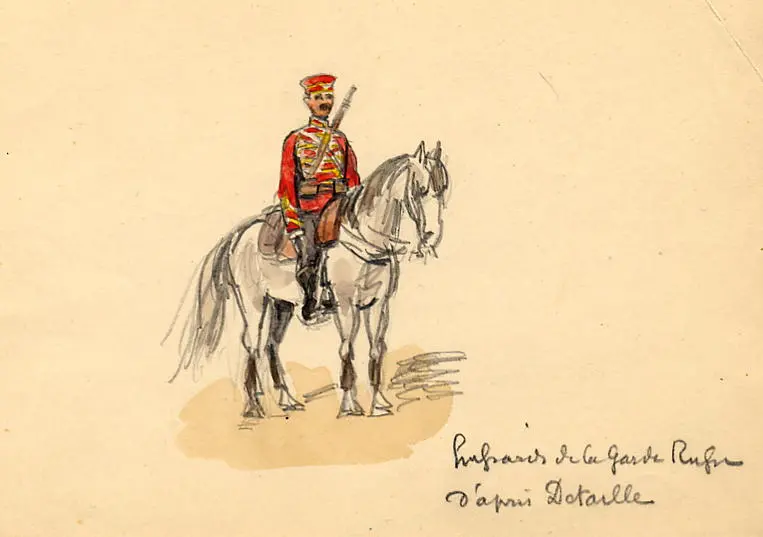 Hussards de la Garde Russe
d'après Detaille